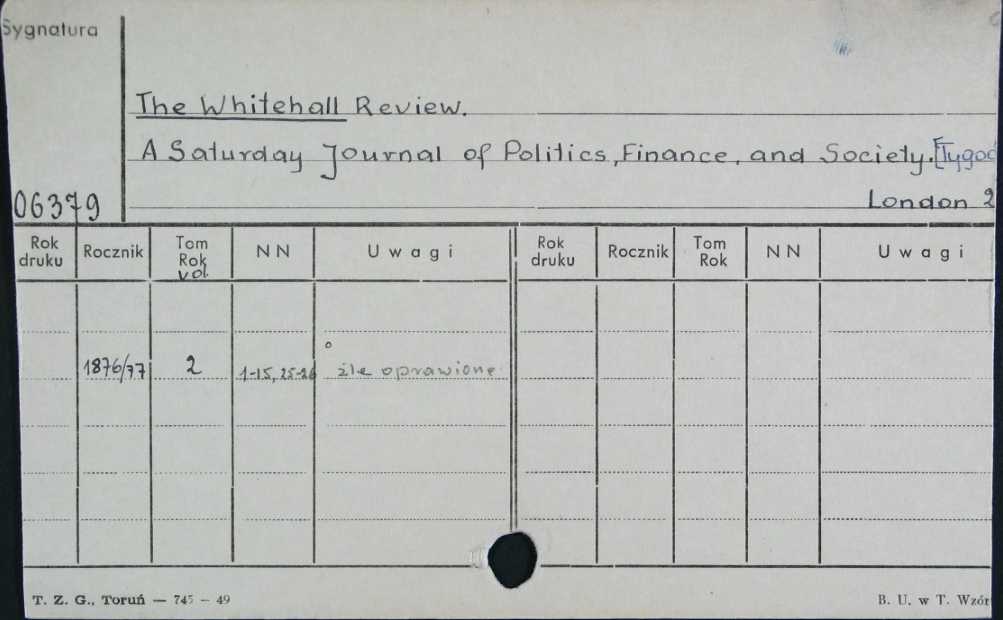 Sygnatura
The Whitehall Review.
A Saturday Journal of Politics, Finance, and Society. [Tygod
06379
London 2
Rok druku Rocznik Tom Rok vol. NN Uwagi Rok druku Rocznik Tom Rok NN Uwagi
1876/77 2 1-15, 25-26 źle oprawione
T. Z. G., Toruń — 745 - 49
B. U. w T. Wzór